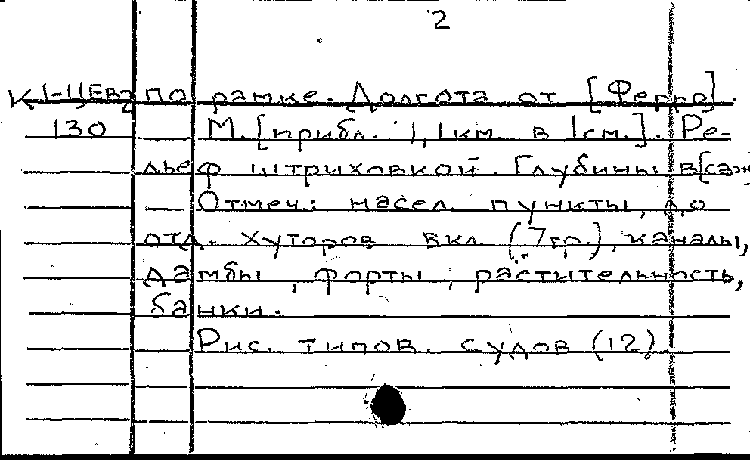 2
К 1-11Ев2 по рамке. Долгота от [Ферро].
130 М. [прибл. 1,1км в 1см.]. Ре-
льеф штриховкой. Глубины в [саж
Отмеч.: насел. пункты, до
отд. хуторов вкл. (7 гр.), каналы,
дамбы, форты, растительность,
банки.
Рис. типов. судов (12)